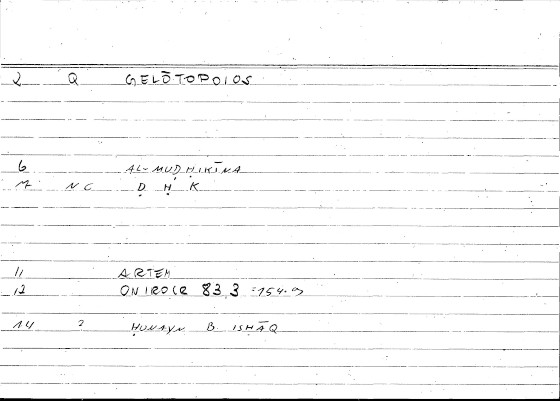 2 Q GELŌTOPOIOS
6 AL-MUḌḤIKĪNA
7 NC Ḍ Ḥ K
11 ARTEM
12 ONIROCR 83 3 = 154.
14 2 ḤUNAYN B. ISḤĀQ